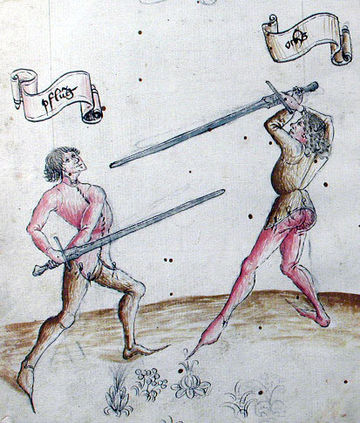 pflug
ochs